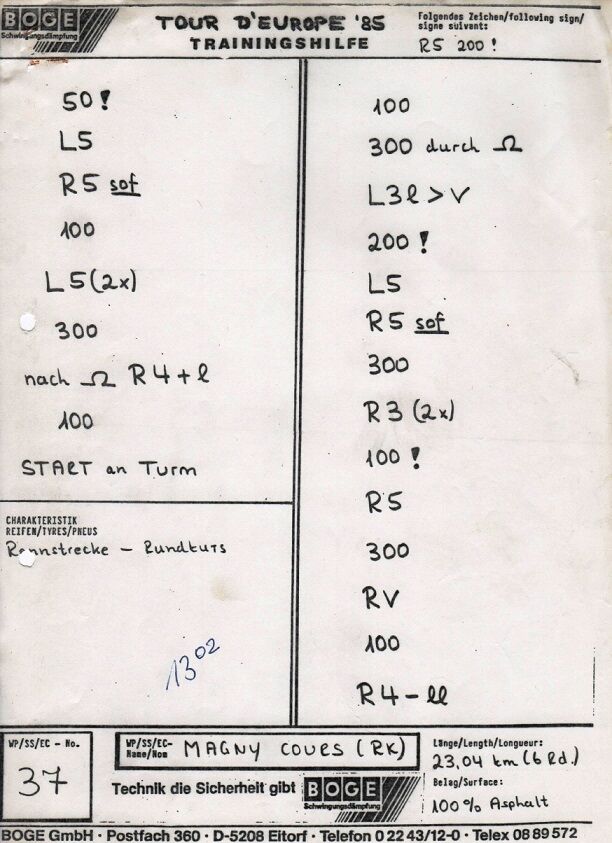 BOGE
Schwingungsdämpfung
TOUR D'EUROPE '85
TRAININGSHILFE
Folgendes Zeichen/following sign/
signe suivant:
R5 200!
50!
L5
R5 sof
100
L5(2x)
300
nach Ω R4+l
100
START an Turm
CHARAKTERISTIK
REIFEN/TYRES/PNEUS
Rennstrecke - Rundkurs
13 02
100
300 durch Ω
L3l > V
200!
L5
R5 sof
300
R3 (2x)
100!
R5
300
RV
100
R4-ll
WP/SS/EC - No.
37
WP/SS/EC-
Name/Nom
MAGNY COURS (RK)
Technik die Sicherheit gibt
BOGE
Schwingungsdämpfung
Länge/Length/Longueur:
23,04 km (6 Rd.)
Belag/Surface:
100% Asphalt
BOGE GmbH · Postfach 360 · D-5208 Eitorf · Telefon 0 22 43/12-0 · Telex 08 89 572